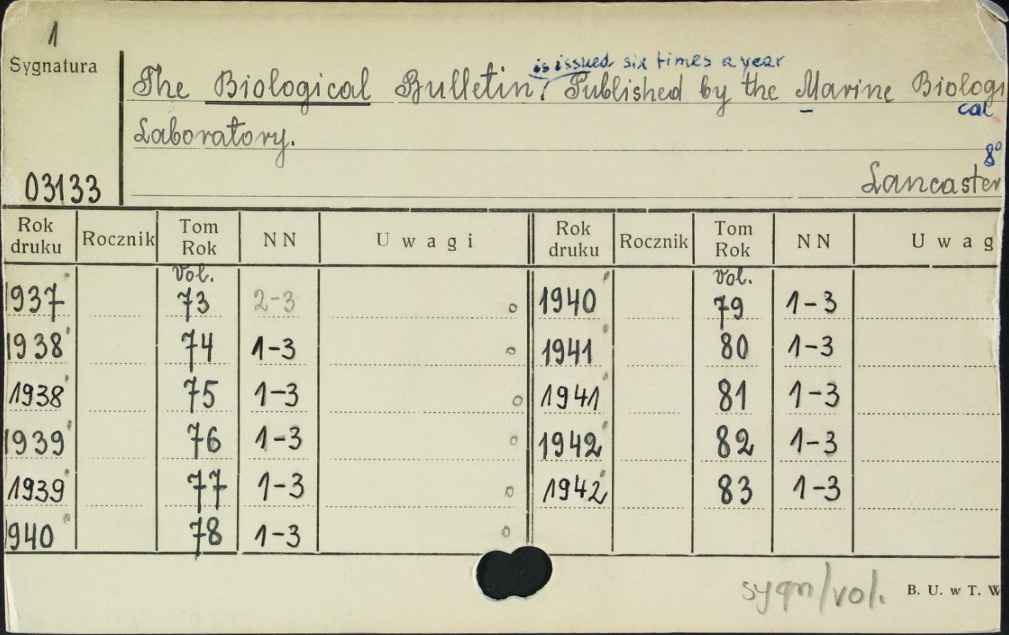 1
Sygnatura
is issued six times a year
The Biological Bulletin. Published by the Marine Biologi
cal
Laboratory.
8°
03133
Lancaster
Rok druku Rocznik Tom Rok NN Uwagi Rok druku Rocznik Tom Rok NN Uwag
Vol. Vol.
1937 73 2-3 1940 79 1-3
1938 74 1-3 1941 80 1-3
1938 75 1-3 1941 81 1-3
1939 76 1-3 1942 82 1-3
1939 77 1-3 1942 83 1-3
940 78 1-3
sygn/vol. B. U. w T. W